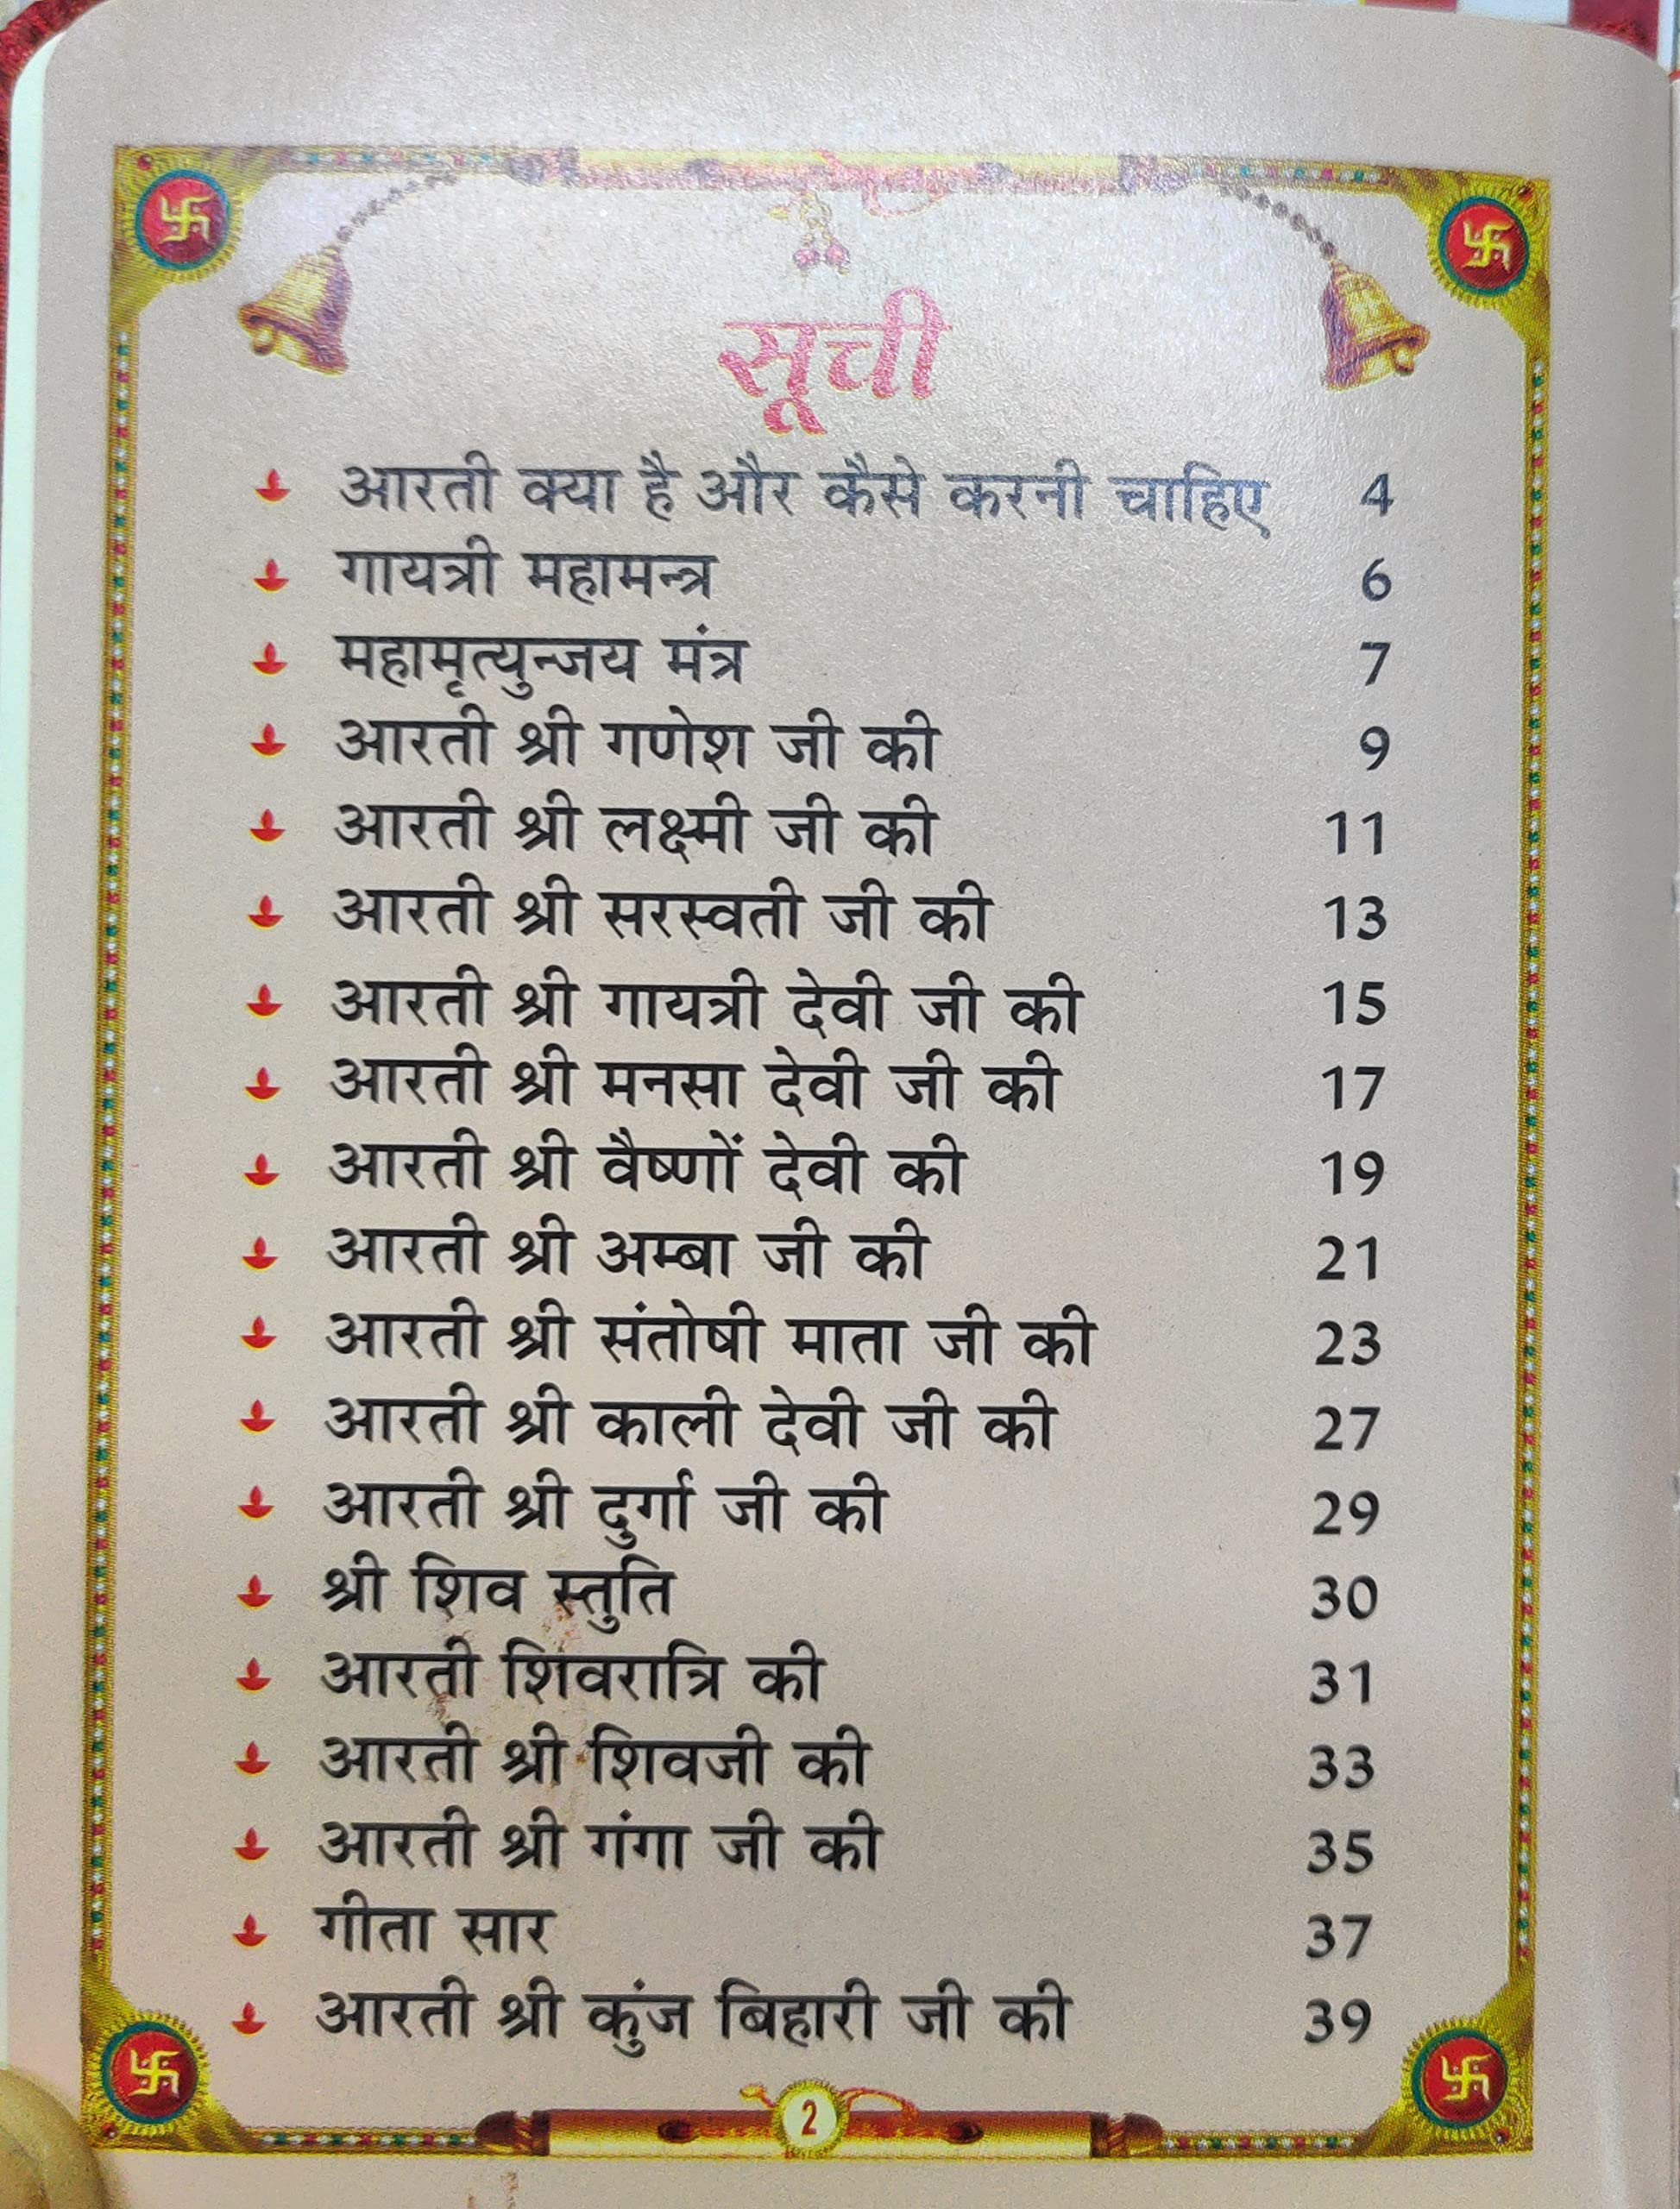 सूची
आरती क्या है और कैसे करनी चाहिए 4
गायत्री महामन्त्र 6
महामृत्युन्जय मंत्र 7
आरती श्री गणेश जी की 9
आरती श्री लक्ष्मी जी की 11
आरती श्री सरस्वती जी की 13
आरती श्री गायत्री देवी जी की 15
आरती श्री मनसा देवी जी की 17
आरती श्री वैष्णों देवी की 19
आरती श्री अम्बा जी की 21
आरती श्री संतोषी माता जी की 23
आरती श्री काली देवी जी की 27
आरती श्री दुर्गा जी की 29
श्री शिव स्तुति 30
आरती शिवरात्रि की 31
आरती श्री शिवजी की 33
आरती श्री गंगा जी की 35
गीता सार 37
आरती श्री कुंज बिहारी जी की 39
2